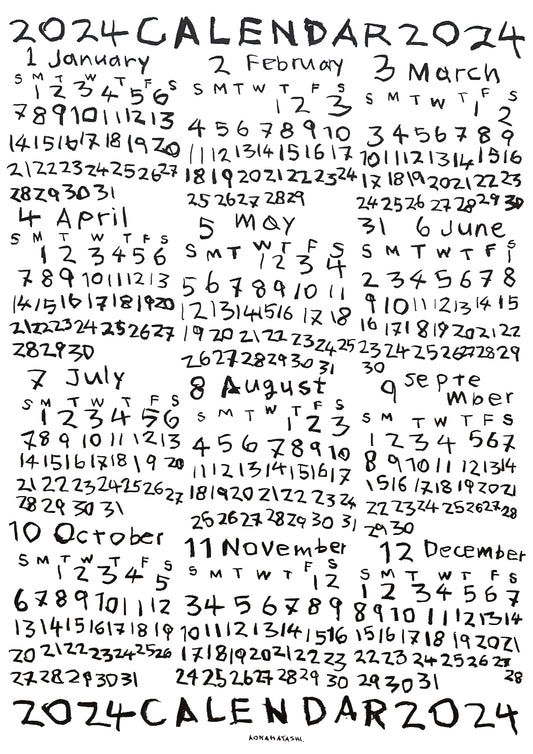 2024 CALENDAR 2024
1 January
S M T W T F S
1 2 3 4 5 6
7 8 9 10 11 12 13
14 15 16 17 18 19 20
21 22 23 24 25 26 27
28 29 30 31
2 February
S M T W T F S
1 2 3
4 5 6 7 8 9 10
11 12 13 14 15 16 17
18 19 20 21 22 23 24
25 26 27 28 29
3 March
S M T W T F S
1 2
3 4 5 6 7 8 9
10 11 12 13 14 15 16
17 18 19 20 21 22 23
24 25 26 27 28 29 30
31
4 April
S M T W T F S
1 2 3 4 5 6
7 8 9 10 11 12 13
14 15 16 17 18 19 20
21 22 23 24 25 26 27
28 29 30
5 MAY
S M T W T F S
1 2 3 4
5 6 7 8 9 10 11
12 13 14 15 16 17 18
19 20 21 22 23 24 25
26 27 28 29 30 31
6 June
S M T W T F S
1
2 3 4 5 6 7 8
9 10 11 12 13 14 15
16 17 18 19 20 21 22
23 24 25 26 27 28 29
30
7 July
S M T W T F S
1 2 3 4 5 6
7 8 9 10 11 12 13
14 15 16 17 18 19 20
21 22 23 24 25 26 27
28 29 30 31
8 August
S M T W T F S
1 2 3
4 5 6 7 8 9 10
11 12 13 14 15 16 17
18 19 20 21 22 23 24
25 26 27 28 29 30 31
9 septe
mber
S M T W T F S
1 2 3 4 5 6 7
8 9 10 11 12 13 14
15 16 17 18 19 20 21
22 23 24 25 26 27 28
29 30
10 October
S M T W T F S
1 2 3 4 5
6 7 8 9 10 11 12
13 14 15 16 17 18 19
20 21 22 23 24 25 26
27 28 29 30 31
11 November
S M T W T F S
1 2
3 4 5 6 7 8 9
10 11 12 13 14 15 16
17 18 19 20 21 22 23
24 25 26 27 28 29 30
12 December
S M T W T F S
1 2 3 4 5 6 7
8 9 10 11 12 13 14
15 16 17 18 19 20 21
22 23 24 25 26 27 28
29 30 31
2024 CALENDAR 2024